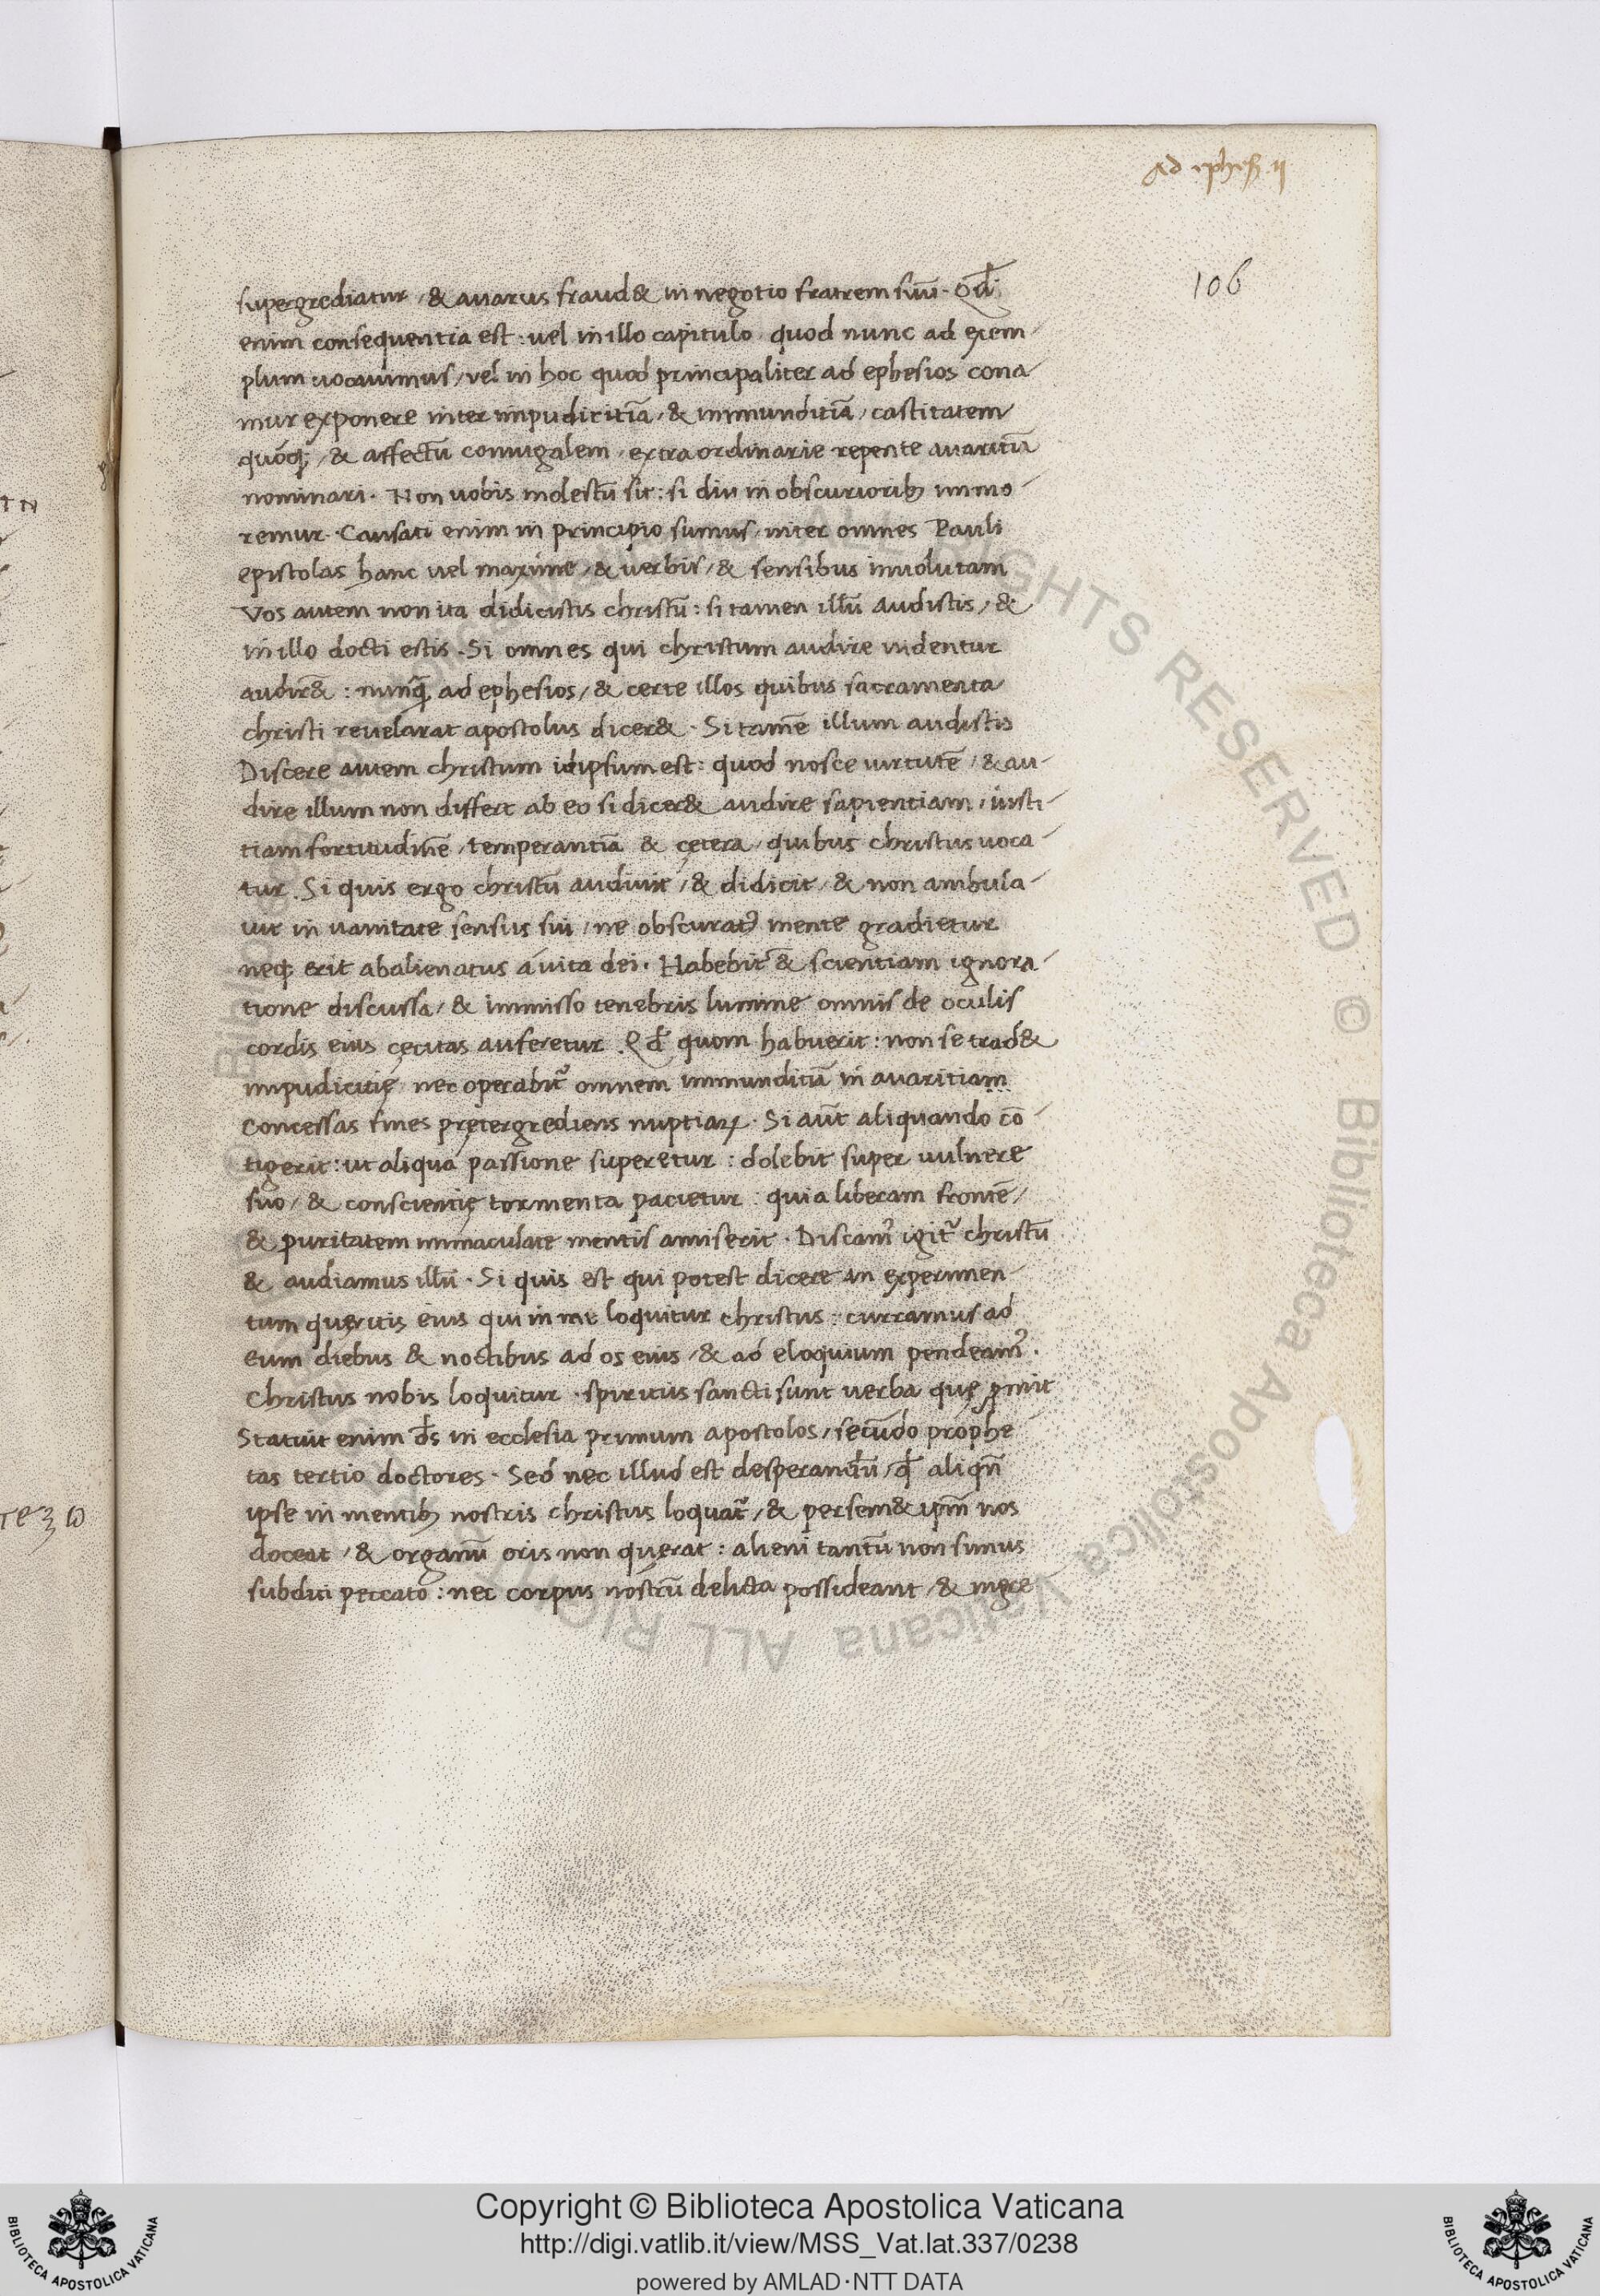 Ad ephes̄ ii
106
supergrediatur / & auarus fraud& in negotio fratrem suū. Qd̄
enim consequentia est : uel in illo capitulo quod nunc ad exem-
plum uocauimus / vel in hoc quod principaliter ad ephesios cona-
mur exponere inter impudicitiā / & immunditiā / castitatem
quoq; / & affectū coniugalem / extraordinarie repente auaritiā
nominari. Non uobis molestū sit : si diu in obscurioribꝫ immo-
remur. Causati enim in principio sumus / inter omnes Pauli
epistolas hanc uel maxime / & uerbis / & sensibus inuolutam
Vos autem non ita didicistis christū : si tamen illū audistis / &
in illo docti estis. Si omnes qui christum audire uidentur
audir& : nunq̄ ad ephesios / & certe illos quibus sacramenta
christi reuelarat apostolus dicer& . Si tamē illum audistis
Discere autem christum idipsum est : quod nosce uirtutē / & au-
dire illum non differt ab eo si dicer& audire sapientiam / iusti-
tiam fortitudinē / temperantiā & cętera / quibus christus uoca-
tur. Si quis ergo christū audiuit / & didicit / & non ambula-
uit in uanitate sensus sui / ne obscurata mente gradietur
neq; erit abalienatus á uita dei. Habebit & scientiam ignora-
tione discussa / & immisso tenebris lumine omnis de oculis
cordis eius cęcitas auferetur. Qd̄ quom habuerit : non se trad&
impudicitię nec operabit᷑ omnem immunditiā in auaritiam
concessas fines prętergrediens nuptiaꝝ. Si aūt aliquando cō-
tigerit : ut aliqua passione superetur : dolebit super uulnere
suo / & conscientię tormenta pacietur : quia liberam frontē /
& puritatem immaculate mentis amiserit. Discamꝰ igit᷑ christū
& audiamus illū. Si quis est qui potest dicere an experimen-
tum quęritis eius qui in me loquitur christus : curramus ad
eum diebus & noctibus ad os eius / & ad eloquium pendeamꝰ.
Christus nobis loquitur. spiritus sancti sunt uerba quę ꝓmit
Statuit enim d̄s in ecclesia primum apostolos / secūdo prophe-
tas tertio doctores. Sed nec illud est desperandū / qd̄ aliqn̄
ipse in mentibꝫ nostris christus loquat᷑ / & persem& ipm̄ nos
doceat / & organū oris non quęrat : alieni tantū non simus
subditi peccato : nec corpus nostrū delicta possideant / & ingre
τεζω
Copyright © Biblioteca Apostolica Vaticana
http://digi.vatlib.it/view/MSS_Vat.lat.337/0238
powered by AMLAD·NTT DATA